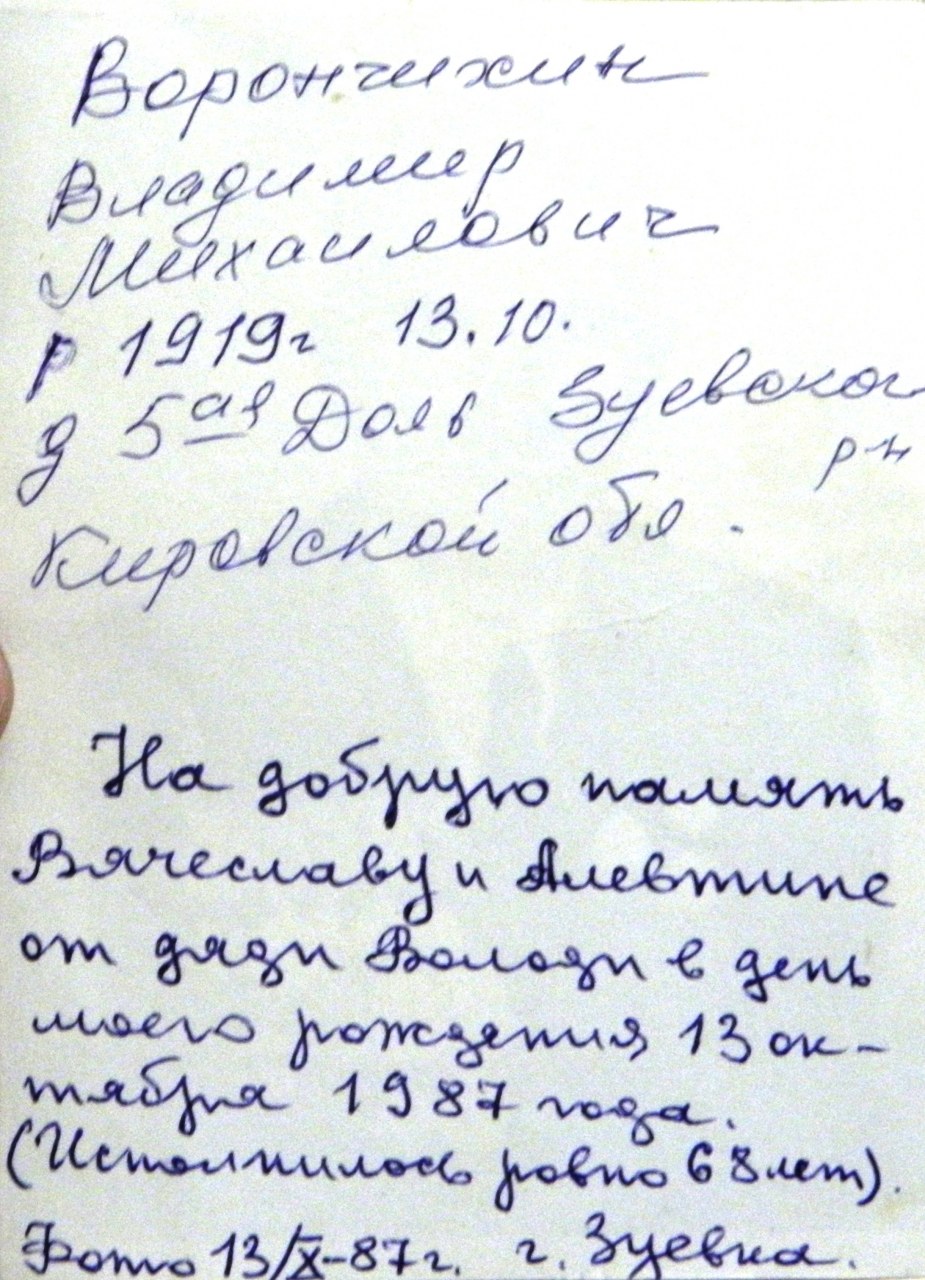 Ворончихин
Владимир
Михаилович
р 1919г 13.10.
д 5ая Доля Зуевског
р-н
Кировской обл.
На добрую память
Вячеславу и Алевтине
от дяди Володи в день
моего рождения 13 ок-
тября 1987 года.
(Исполнилось ровно 68 лет).
Фото 13/X-87г. г. Зуевка.